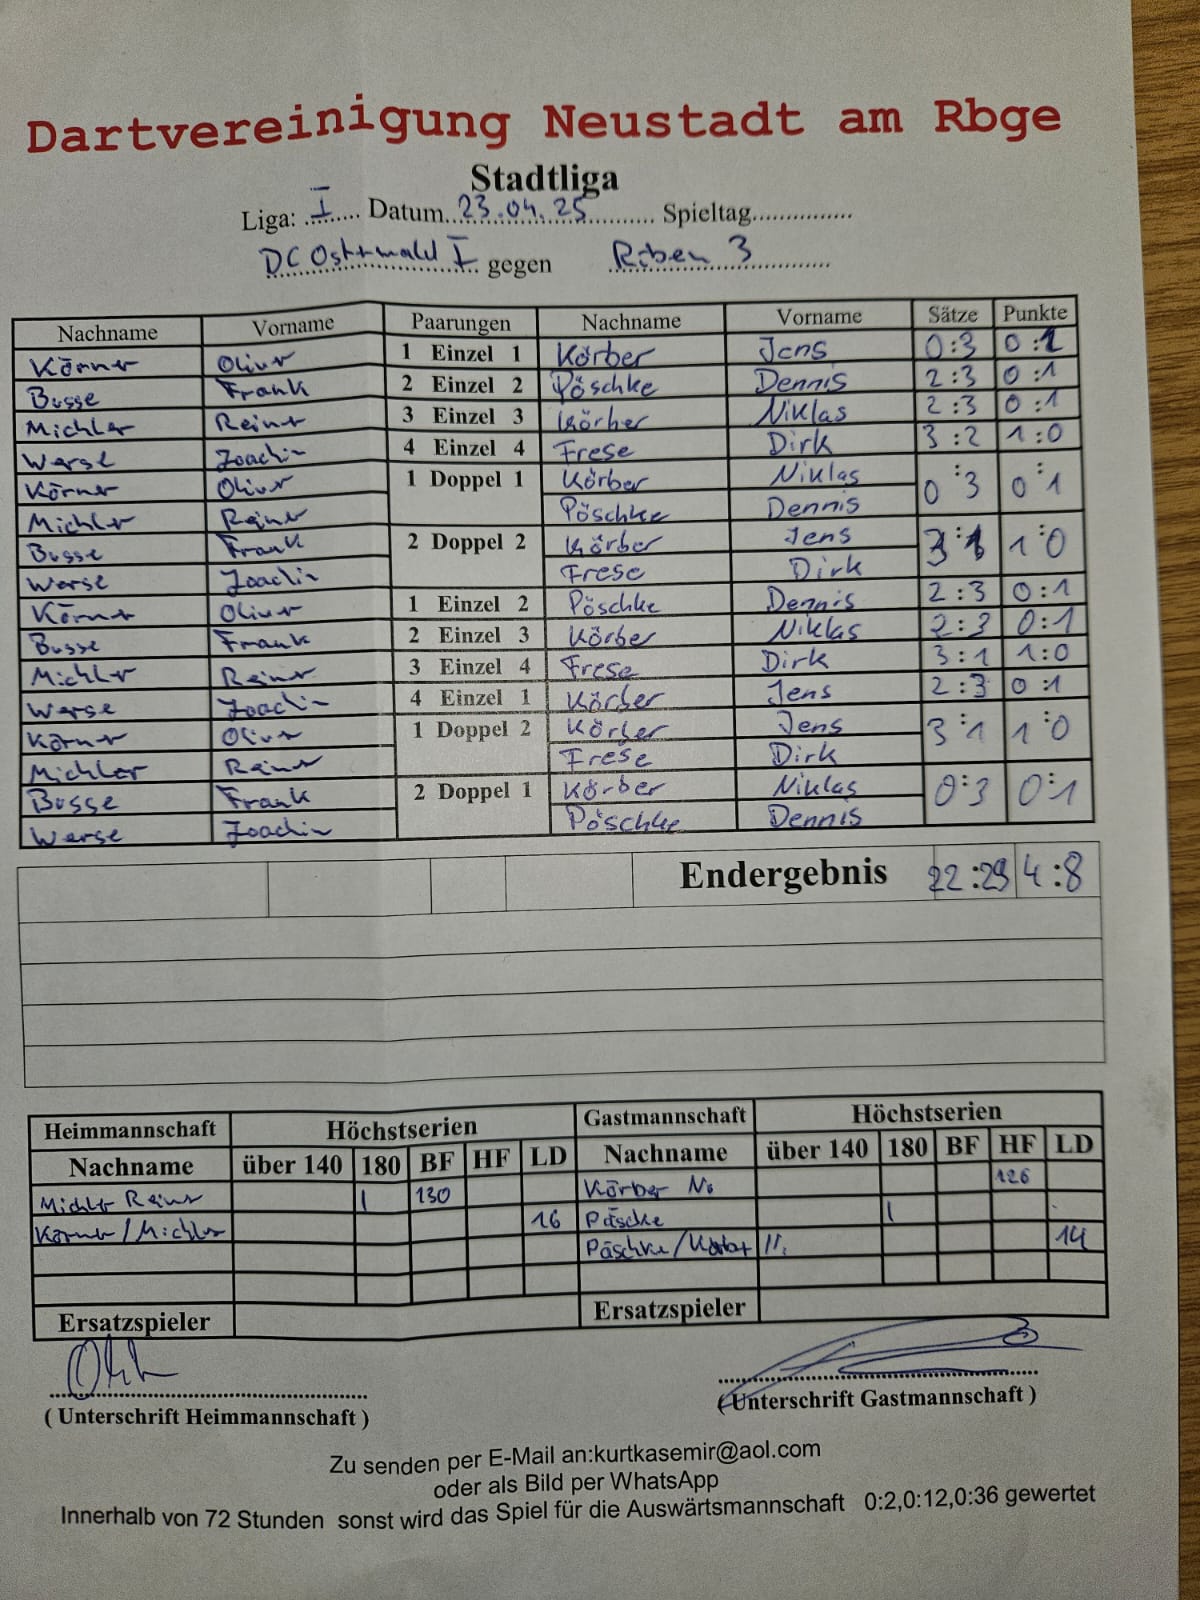 Dartvereinigung Neustadt am Rbge
Stadtliga
Liga: I Datum 23.04.25 Spieltag
DC Osterwald I gegen Raben 3
Nachname Vorname Paarungen Nachname Vorname Sätze Punkte
Körner Oliver 1 Einzel 1 Körber Jens 0:3 0:1
Busse Frank 2 Einzel 2 Pöschke Dennis 2:3 0:1
Michler Reiner 3 Einzel 3 Körber Niklas 2:3 0:1
Werse Joachin 4 Einzel 4 Frese Dirk 3:2 1:0
Körner Oliver 1 Doppel 1 Körber Niklas 0:3 0:1
Michler Reiner Pöschke Dennis
Busse Frank 2 Doppel 2 Körber Jens 3:1 1:0
Werse Joachin Frese Dirk
Körner Oliver 1 Einzel 2 Pöschke Dennis 2:3 0:1
Busse Frank 2 Einzel 3 Körber Niklas 2:3 0:1
Michler Reiner 3 Einzel 4 Frese Dirk 3:1 1:0
Werse Joachin 4 Einzel 1 Körber Jens 2:3 0:1
Körner Oliver 1 Doppel 2 Körber Jens 3:1 1:0
Michler Reiner Frese Dirk
Busse Frank 2 Doppel 1 Körber Niklas 0:3 0:1
Werse Joachin Pöschke Dennis
Endergebnis 22:29 4:8
Heimmannschaft Höchstserien Gastmannschaft Höchstserien
Nachname über 140 180 BF HF LD Nachname über 140 180 BF HF LD
Michler Reiner I 130 Körber Ni 126
Körner/Michler 16 Päscke I
Päschke/Körber 14
Ersatzspieler Ersatzspieler
(Unterschrift Heimmannschaft) (Unterschrift Gastmannschaft)
Zu senden per E-Mail an:kurtkasemir@aol.com
oder als Bild per WhatsApp
Innerhalb von 72 Stunden sonst wird das Spiel für die Auswärtsmannschaft 0:2,0:12,0:36 gewertet